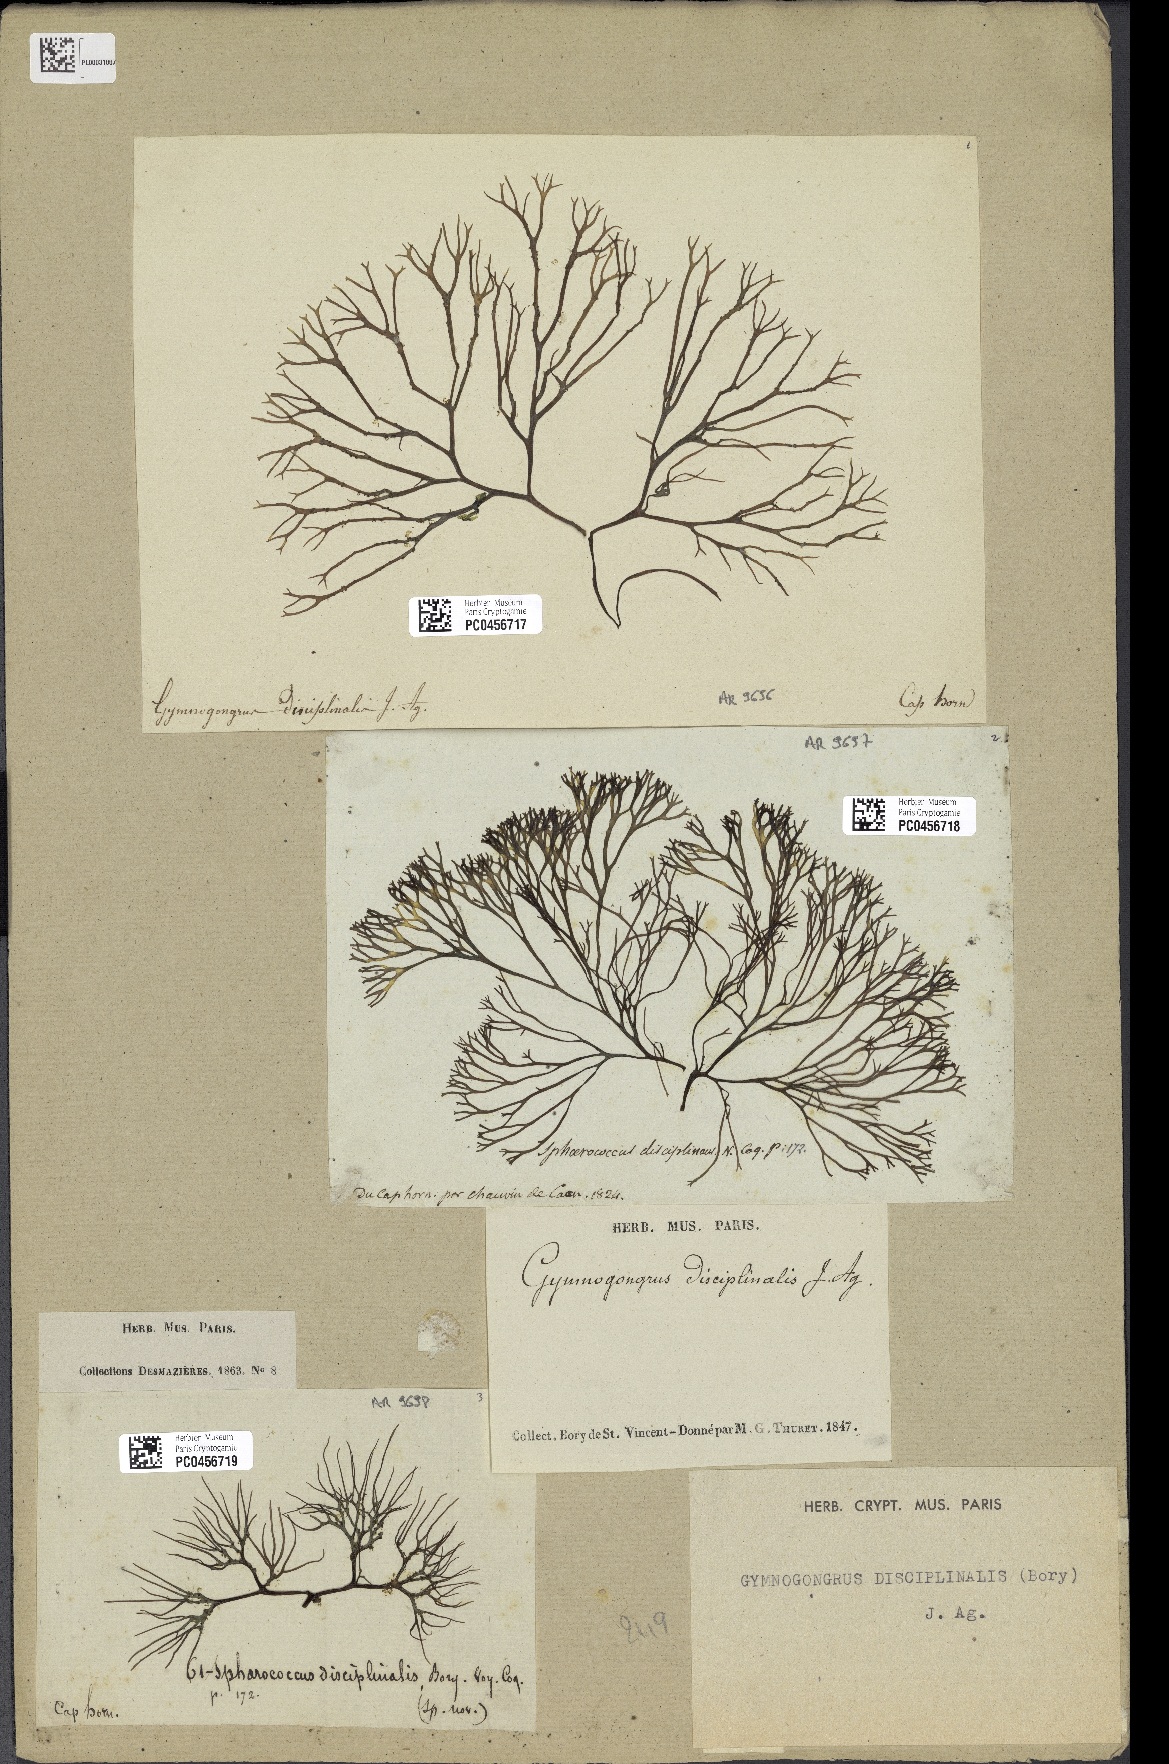 PL0003100
1
Herbier Museum
Paris Cryptogamie
PC0456717
Gymnogongrus Disciplinalis J. Ag.
AR 9696
Cap horn
AR 9697
2
Herbier Museum
Paris Cryptogamie
PC0456718
Sphærococcus disciplinalis, N. Coq. p. 172.
Du cap horn. par chauvin de Caen. 1824.
HERB. MUS. PARIS.
Gymnogongrus disciplinalis J. Ag.
Collect. Bory de St. Vincent-Donné par M. G. THURET. 1847.
HERB. MUS. PARIS.
Collections DESMAZIÈRES, 1863. No 8
AR 9698
3
Herbier Museum
Paris Cryptogamie
PC0456719
61-Sphærococcus disciplinalis, Bory. Voy. Coq.
p. 172.
(Sp. nov.)
Cap horn.
HERB. CRYPT. MUS. PARIS
GYMNOGONGRUS DISCIPLINALIS (Bory)
J. Ag.